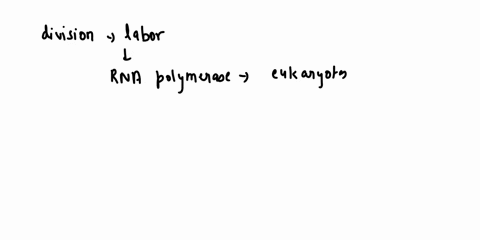 division → labor
↓
RNA polymerase → eukaryotes